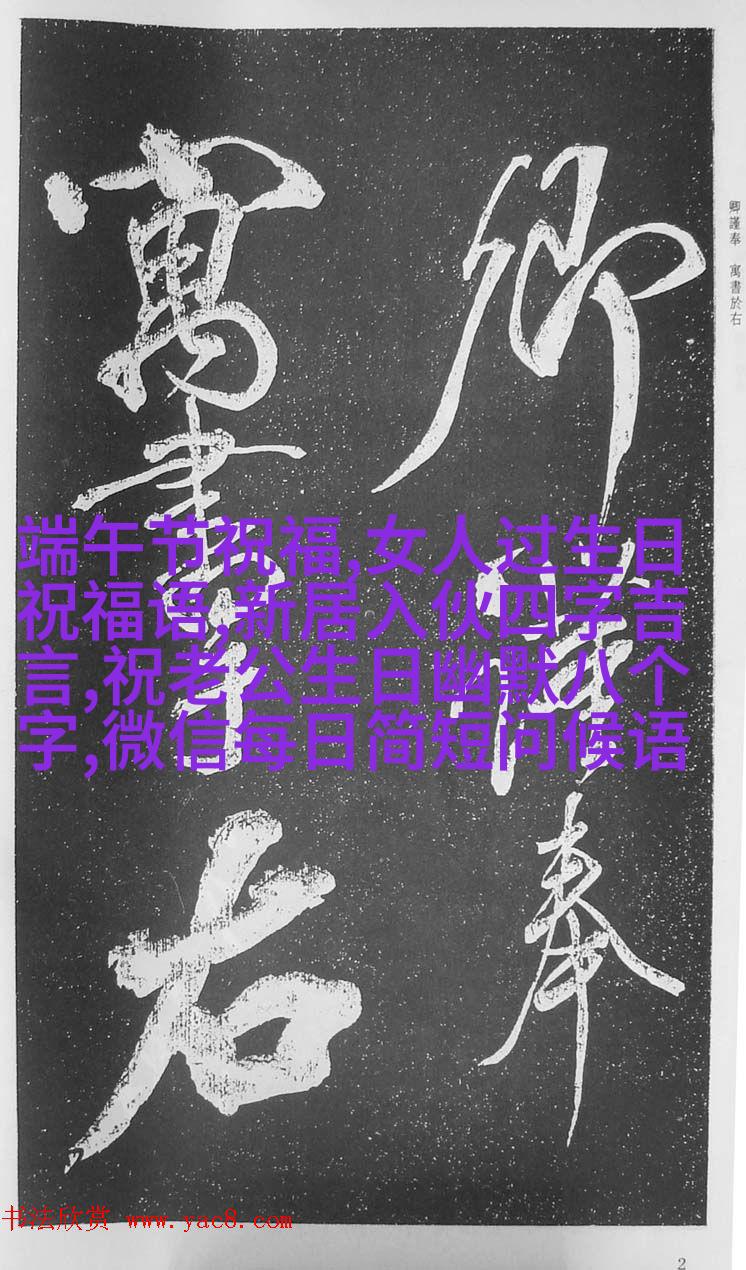 卿謹奉
寓書於右
卿謹奉 寓書於右
端午节祝福,女人过生日
祝福语,新居入伙四字吉
言,祝老公生日幽默八个
字,微信每日简短问候语
书法欣赏 www.yac8.com
2